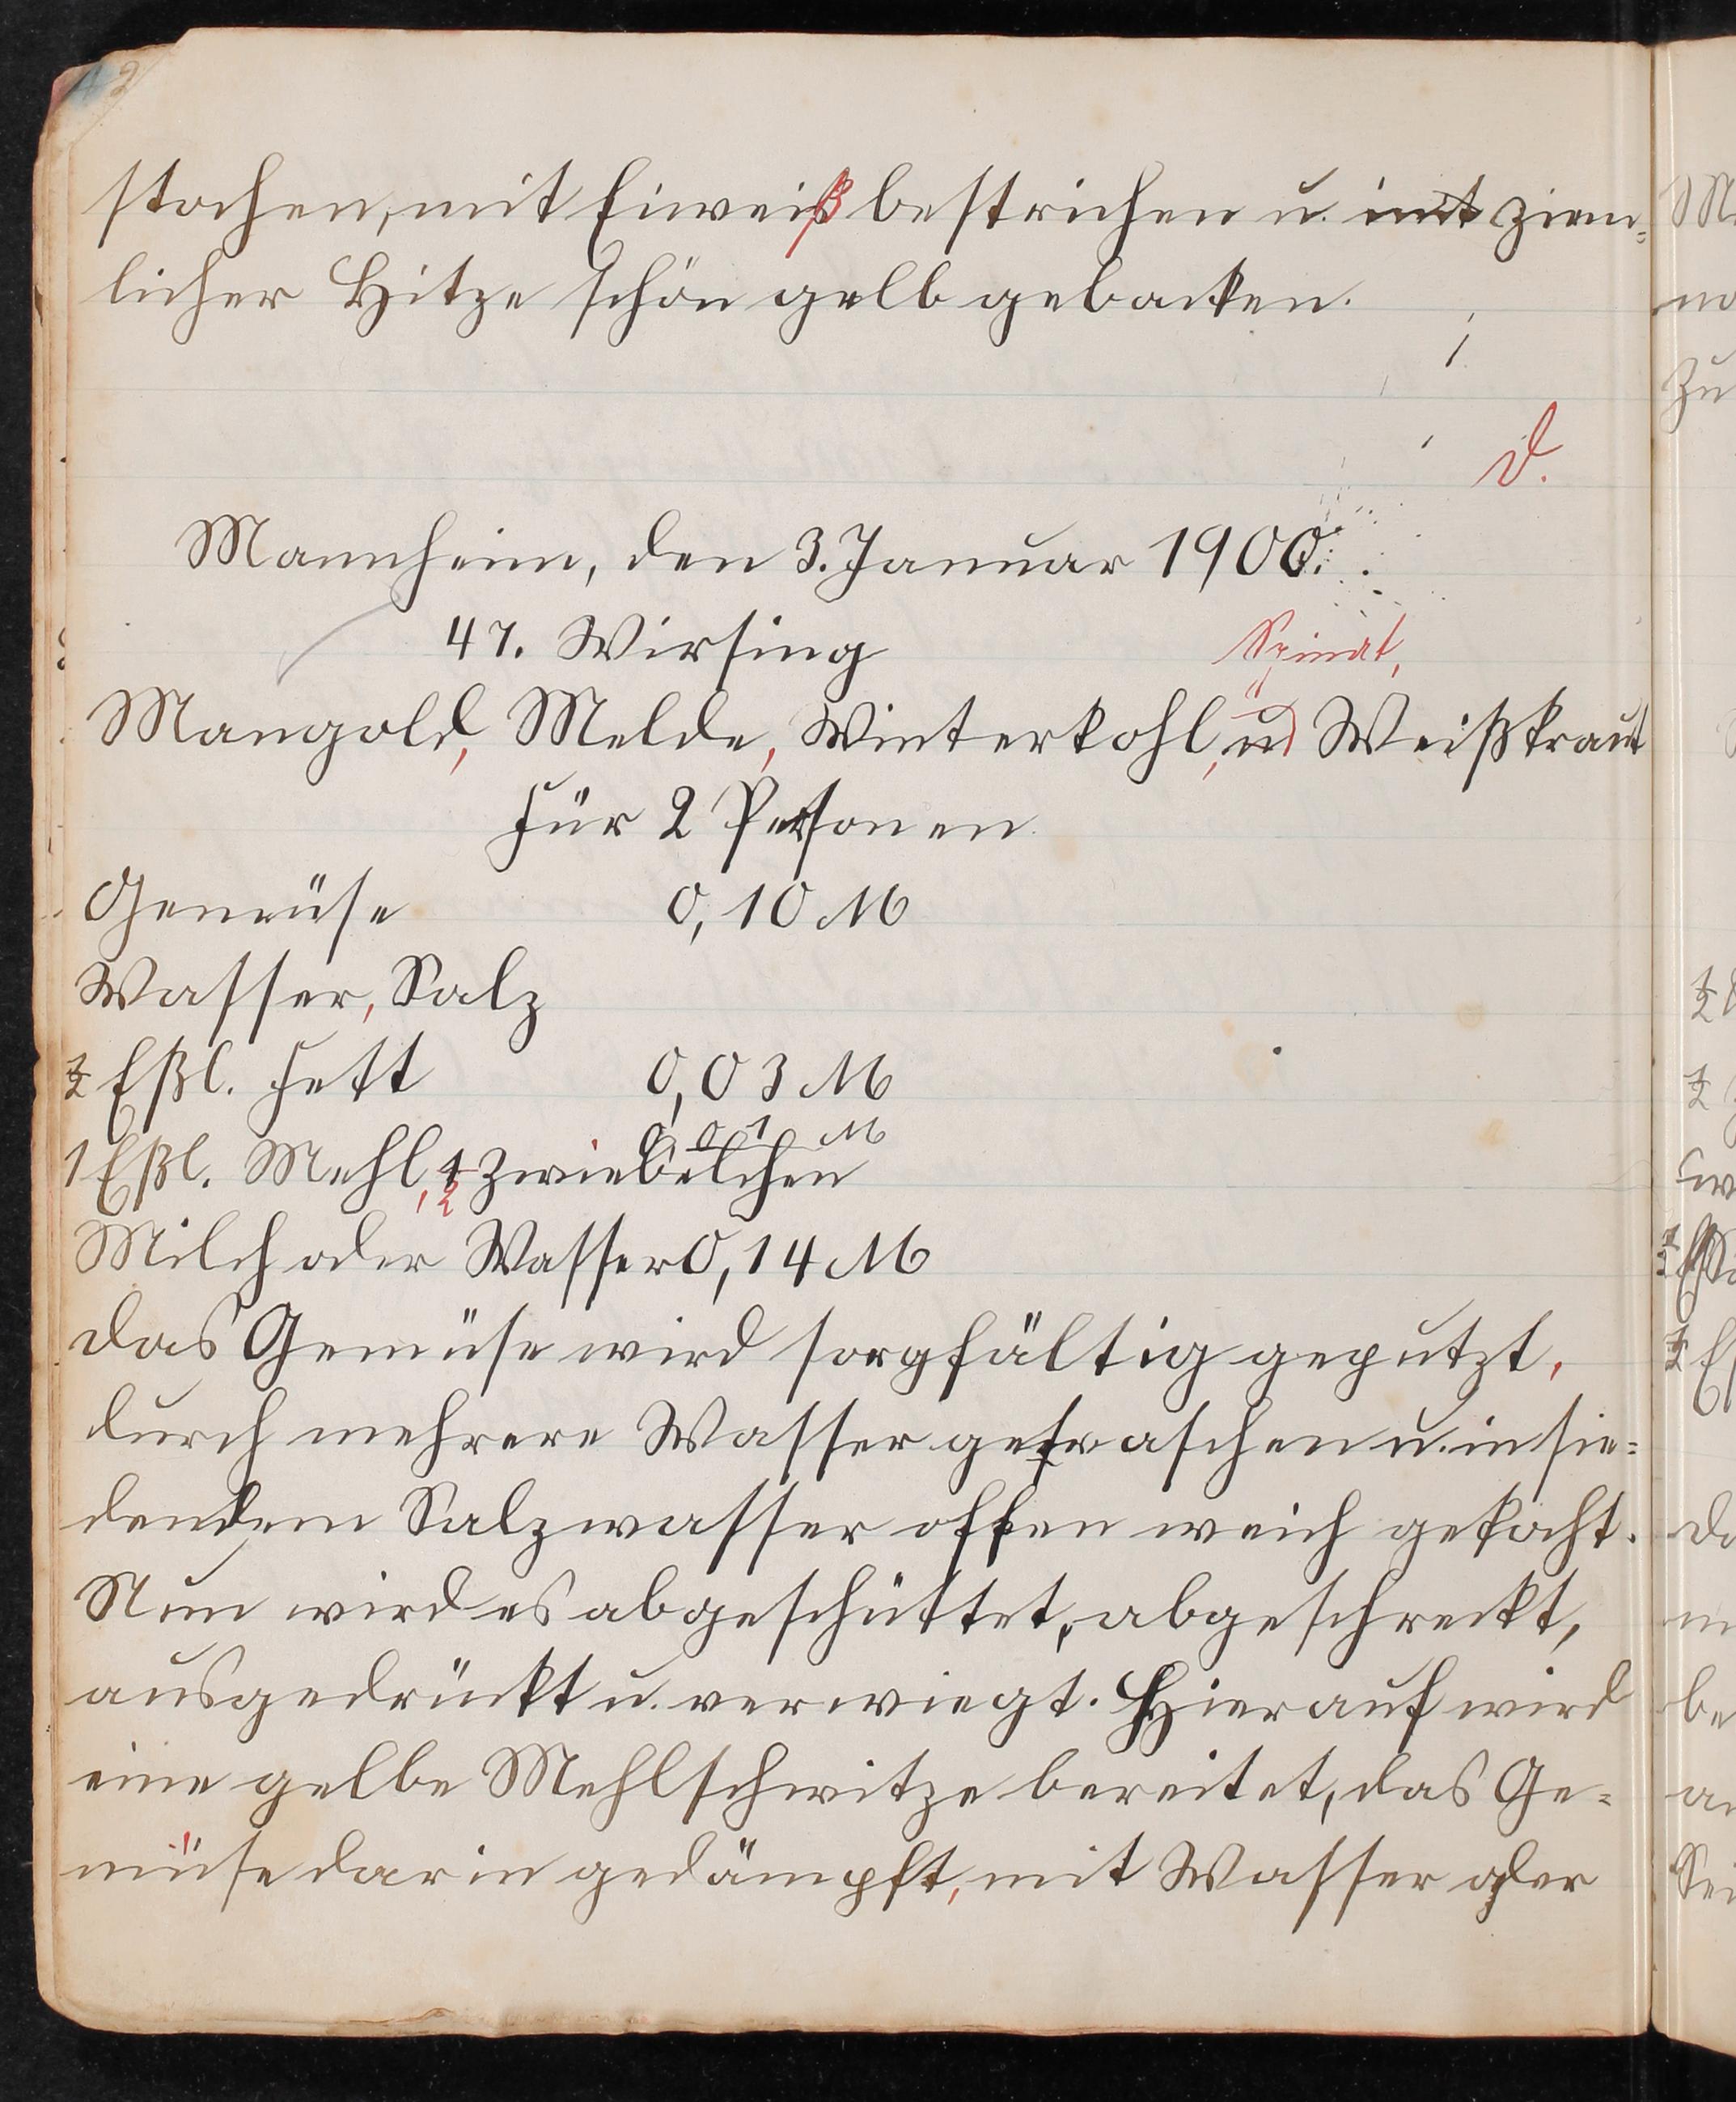 stochen, mit Eiweiß bestrichen u. mit ziem-
licher Hitze schön gelb gebacken.
d.
Mannheim, den 3. Januar 1900.
47. Wirsing
Spinat,
Mangold, Melde, Winterkohl, u Weißkraut
für 2 Personen
Gemüse 0,10 M
Wasser, Salz
½ Eßl. Fett 0,03 M
0,01 M
1 Eßl. Mehl, ½ Zwiebelchen
Milch oder Wasser 0,14 M
das Gemüse wird sorgfältig geputzt,
durch mehrere Wasser gewaschen u. in sie-
dendem Salzwasser offen weich gekocht.
Nun wird es abgeschüttet, abgeschreckt,
ausgedrückt u. verwiegt. Hierauf wird
eine gelbe Mehlschwitze bereitet, das Ge-
müse darin gedämpft, mit Wasser oder